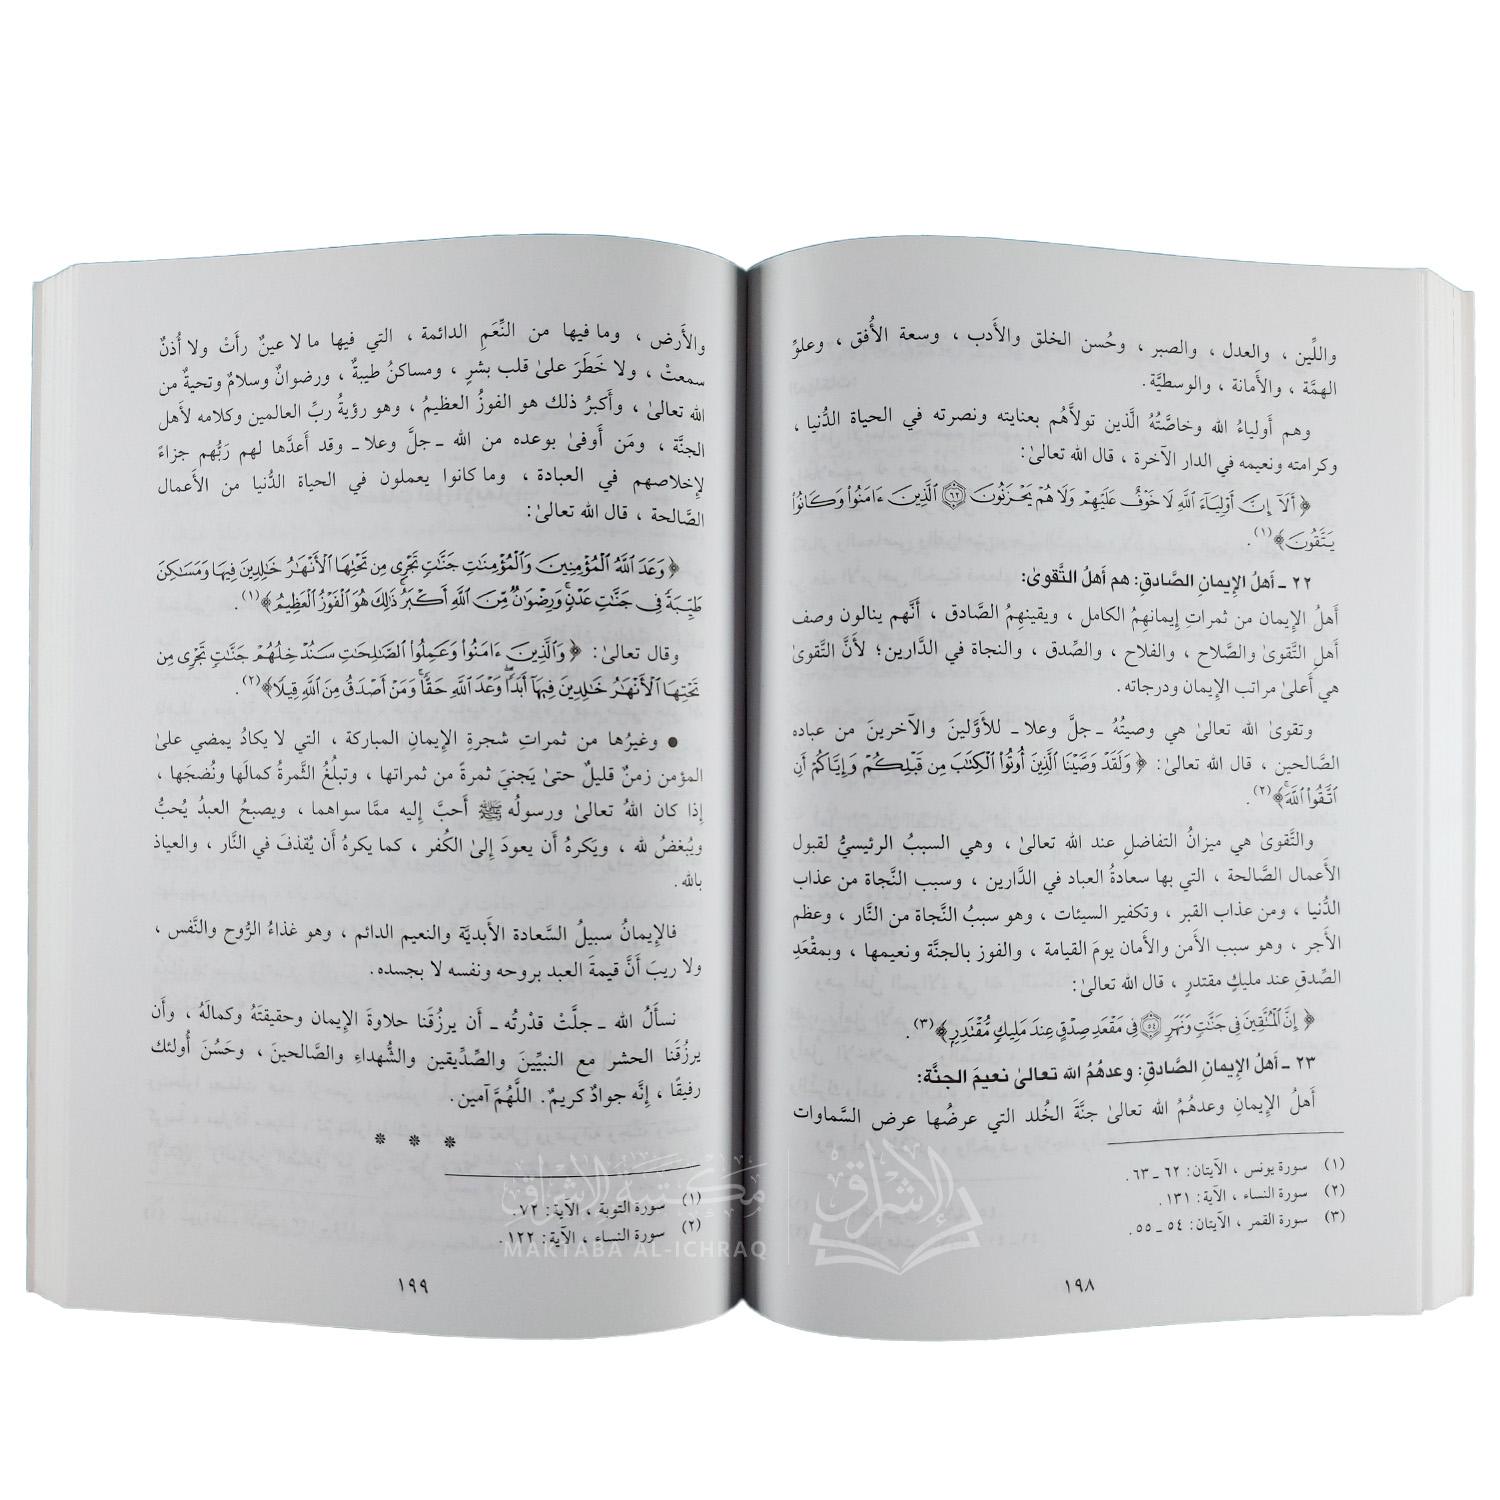 واللِّين ، والعدل ، والصبر ، وحُسن الخلق والأَدب ، وسعة الأُفق ، وعلوِّ
الهمَّة ، والأَمانة ، والوسطيَّة.
وهم أَولياءُ الله وخاصَّتُهُ الَّذين تولاَّهُم بعنايته ونصرته في الحياة الدُّنيا ،
وكرامته ونعيمه في الدار الآخرة ، قال الله تعالىٰ:
﴿ أَلَآ إِنَّ أَوْلِيَآءَ ٱللَّهِ لَا خَوْفٌ عَلَيْهِمْ وَلَا هُمْ يَحْزَنُونَ ۝٦٢ ٱلَّذِينَ ءَامَنُوا۟ وَكَانُوا۟
يَتَّقُونَ ﴾(١).
٢٢ ـ أهلُ الإِيمان الصَّادقِ: هم أهلُ التَّقوىٰ:
أهلُ الإِيمان من ثمراتِ إِيمانهِمُ الكامل ، ويقينهِمُ الصَّادق ، أَنَّهم ينالون وصف
أَهلِ التَّقوىٰ والصَّلاح ، والفلاح ، والصِّدق ، والنجاة في الدَّارين؛ لأَنَّ التَّقوىٰ
هي أَعلىٰ مراتب الإِيمان ودرجاته.
وتقوىٰ الله تعالىٰ هي وصيتُهُ ـ جلَّ وعلا ـ للأَوَّلينَ والآخرينَ من عباده
الصَّالحين ، قال الله تعالىٰ: ﴿ وَلَقَدْ وَصَّيْنَا ٱلَّذِينَ أُوتُوا۟ ٱلْكِتَٰبَ مِن قَبْلِكُمْ وَإِيَّاكُمْ أَنِ
ٱتَّقُوا۟ ٱللَّهَ ﴾(٢).
والتَّقوىٰ هي ميزانُ التفاضلِ عند الله تعالىٰ ، وهي السببُ الرئيسيُّ لقبول
الأَعمال الصَّالحة ، التي بها سعادةُ العباد في الدَّارين ، وسبب النَّجاة من عذاب
الدُّنيا ، ومن عذاب القبر ، وتكفير السيئات ، وهو سببُ النَّجاة من النَّار ، وعظم
الأَجر ، وهو سبب الأَمن والأَمان يومَ القيامة ، والفوز بالجنَّة ونعيمها ، وبمقْعَدِ
الصِّدقِ عند مليكٍ مقتدرٍ ، قال الله تعالىٰ:
﴿ إِنَّ ٱلْمُتَّقِينَ فِى جَنَّٰتٍ وَنَهَرٍ ۝٥٤ فِى مَقْعَدِ صِدْقٍ عِندَ مَلِيكٍ مُّقْتَدِرٍۭ ﴾(٣).
٢٣ ـ أهلُ الإِيمان الصَّادقِ: وعدهُمُ الله تعالىٰ نعيمَ الجنَّة:
أَهلُ الإِيمانِ وعدهُمُ الله تعالىٰ جنَّةَ الخُلد التي عرضُها عرض السَّماوات
(١) سورة يونس ، الآيتان: ٦٢ ـ ٦٣.
(٢) سورة النساء ، الآية: ١٣١.
(٣) سورة القمر ، الآيتان: ٥٤ ـ ٥٥.
١٩٨
والأَرض ، وما فيها من النِّعَمِ الدائمة ، التي فيها ما لا عينٌ رأَتْ ولا أُذنٌ
سمعتْ ، ولا خَطَرَ علىٰ قلب بشرٍ ، ومساكنُ طيبةٌ ، ورضوانٌ وسلامٌ وتحيةٌ من
الله تعالىٰ ، وأَكبرُ ذلك هو الفوزُ العظيمُ ، وهو رؤيةُ ربِّ العالمين وكلامه لأَهل
الجنَّة ، ومَن أَوفىٰ بوعده من الله ـ جلَّ وعلا ـ وقد أَعدَّها لهم رَبُّهم جزاءً
لإِخلاصهم في العبادة ، وما كانوا يعملون في الحياة الدُّنيا من الأَعمال
الصَّالحة ، قال الله تعالىٰ:
﴿ وَعَدَ ٱللَّهُ ٱلْمُؤْمِنِينَ وَٱلْمُؤْمِنَٰتِ جَنَّٰتٍ تَجْرِى مِن تَحْتِهَا ٱلْأَنْهَٰرُ خَٰلِدِينَ فِيهَا وَمَسَٰكِنَ
طَيِّبَةً فِى جَنَّٰتِ عَدْنٍ ۚ وَرِضْوَٰنٌ مِّنَ ٱللَّهِ أَكْبَرُ ۚ ذَٰلِكَ هُوَ ٱلْفَوْزُ ٱلْعَظِيمُ ﴾(١).
وقال تعالىٰ: ﴿ وَٱلَّذِينَ ءَامَنُوا۟ وَعَمِلُوا۟ ٱلصَّٰلِحَٰتِ سَنُدْخِلُهُمْ جَنَّٰتٍ تَجْرِى مِن
تَحْتِهَا ٱلْأَنْهَٰرُ خَٰلِدِينَ فِيهَآ أَبَدًا ۖ وَعْدَ ٱللَّهِ حَقًّا ۚ وَمَنْ أَصْدَقُ مِنَ ٱللَّهِ قِيلًا ﴾(٢).
● وغيرُها من ثمراتِ شجرةِ الإِيمان المباركة ، التي لا يكادُ يمضي علىٰ
المؤمن زمنٌ قليلٌ حتىٰ يَجنيَ ثمرةً من ثمراتها ، وتبلُغُ الثَّمرةُ كمالَها ونُضجَها ،
إِذا كان اللهُ تعالىٰ ورسولُه ﷺ أَحبَّ إِليه ممَّا سواهما ، ويصبحُ العبدُ يُحبُّ
ويُبغضُ لله ، ويَكرهُ أَن يعودَ إِلىٰ الكُفر ، كما يكرهُ أَن يُقذفَ في النَّار ، والعياذ
بالله.
فالإِيمانُ سبيلُ السَّعادة الأَبديَّة والنعيم الدائم ، وهو غذاءُ الرُّوح والنَّفس ،
ولا ريبَ أَنَّ قيمةَ العبد بروحه ونفسه لا بجسده.
نسأَلُ الله ـ جلَّتْ قدْرتُه ـ أَن يرزُقَنا حلاوةَ الإِيمان وحقيقتَهُ وكمالَهُ ، وأَن
يرزُقَنا الحشر مع النبيِّينَ والصِّدِّيقين والشُّهداءِ والصَّالحينَ ، وحَسُنَ أُولئك
رفيقًا ، إِنَّه جوادٌ كريمٌ. اللَّهُمَّ آمين.
* * *
(١) سورة التوبة ، الآية: ٧٢.
(٢) سورة النساء ، الآية: ١٢٢.
١٩٩
مكتبة الإشراق
MAKTABA AL-ICHRAQ
الإشراق